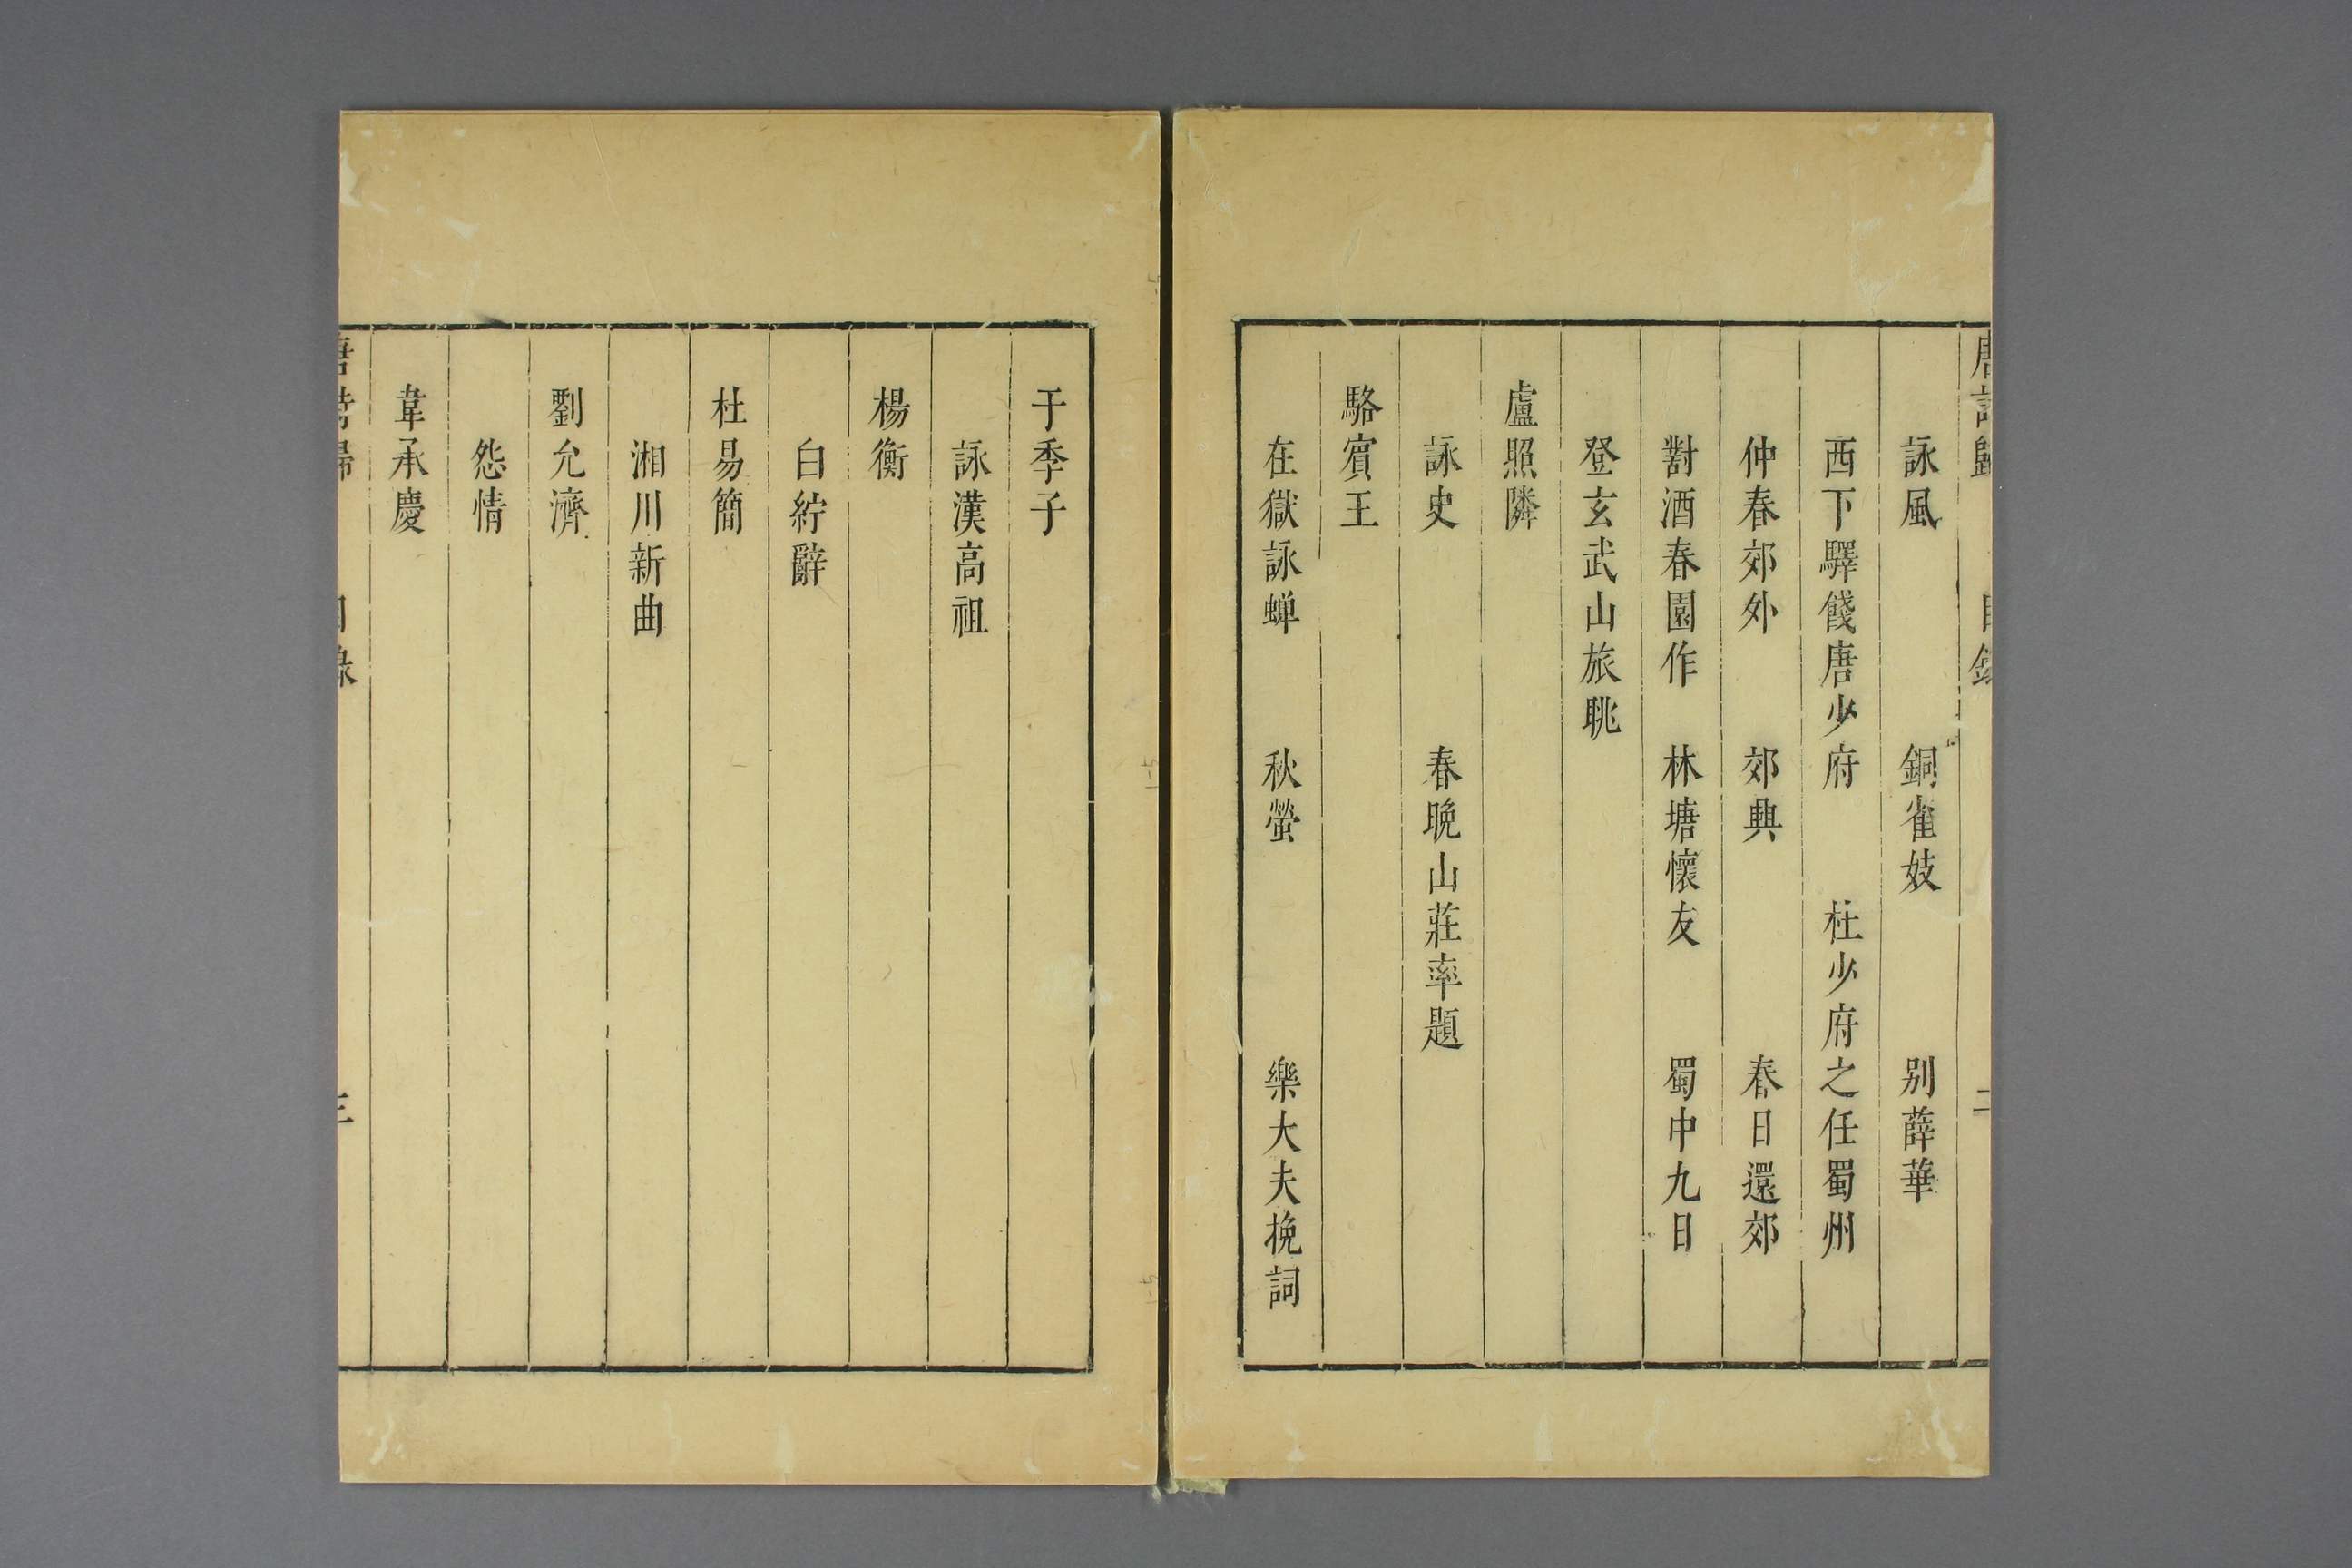 唐詩歸 目錄 二
詠風 銅雀妓 别薛華
西下驛餞唐少府 杜少府之任蜀州
仲春郊外 郊興 春日還郊
對酒春園作 林塘懷友 蜀中九日
登玄武山旅眺
盧照隣
詠史 春晚山莊率題
駱賓王
在獄詠蟬 秋螢 樂大夫挽詞
于季子
詠漢高祖
楊衡
白紵辭
杜易簡
湘川新曲
劉允濟
怨情
韋承慶
唐詩歸 目錄 三